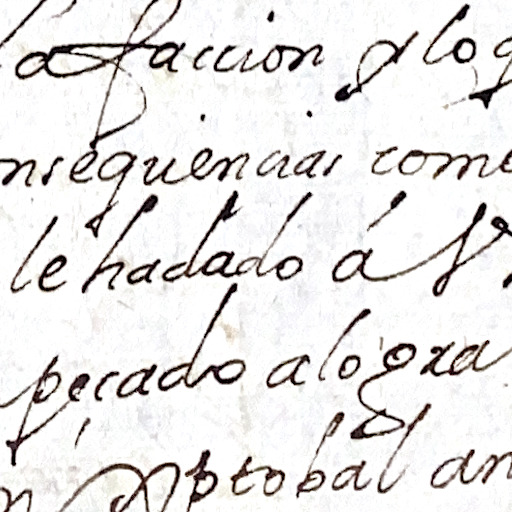 la faccion y lo q
nsequencias come
le ha dado á V.
pecado alogra
Xptobal an